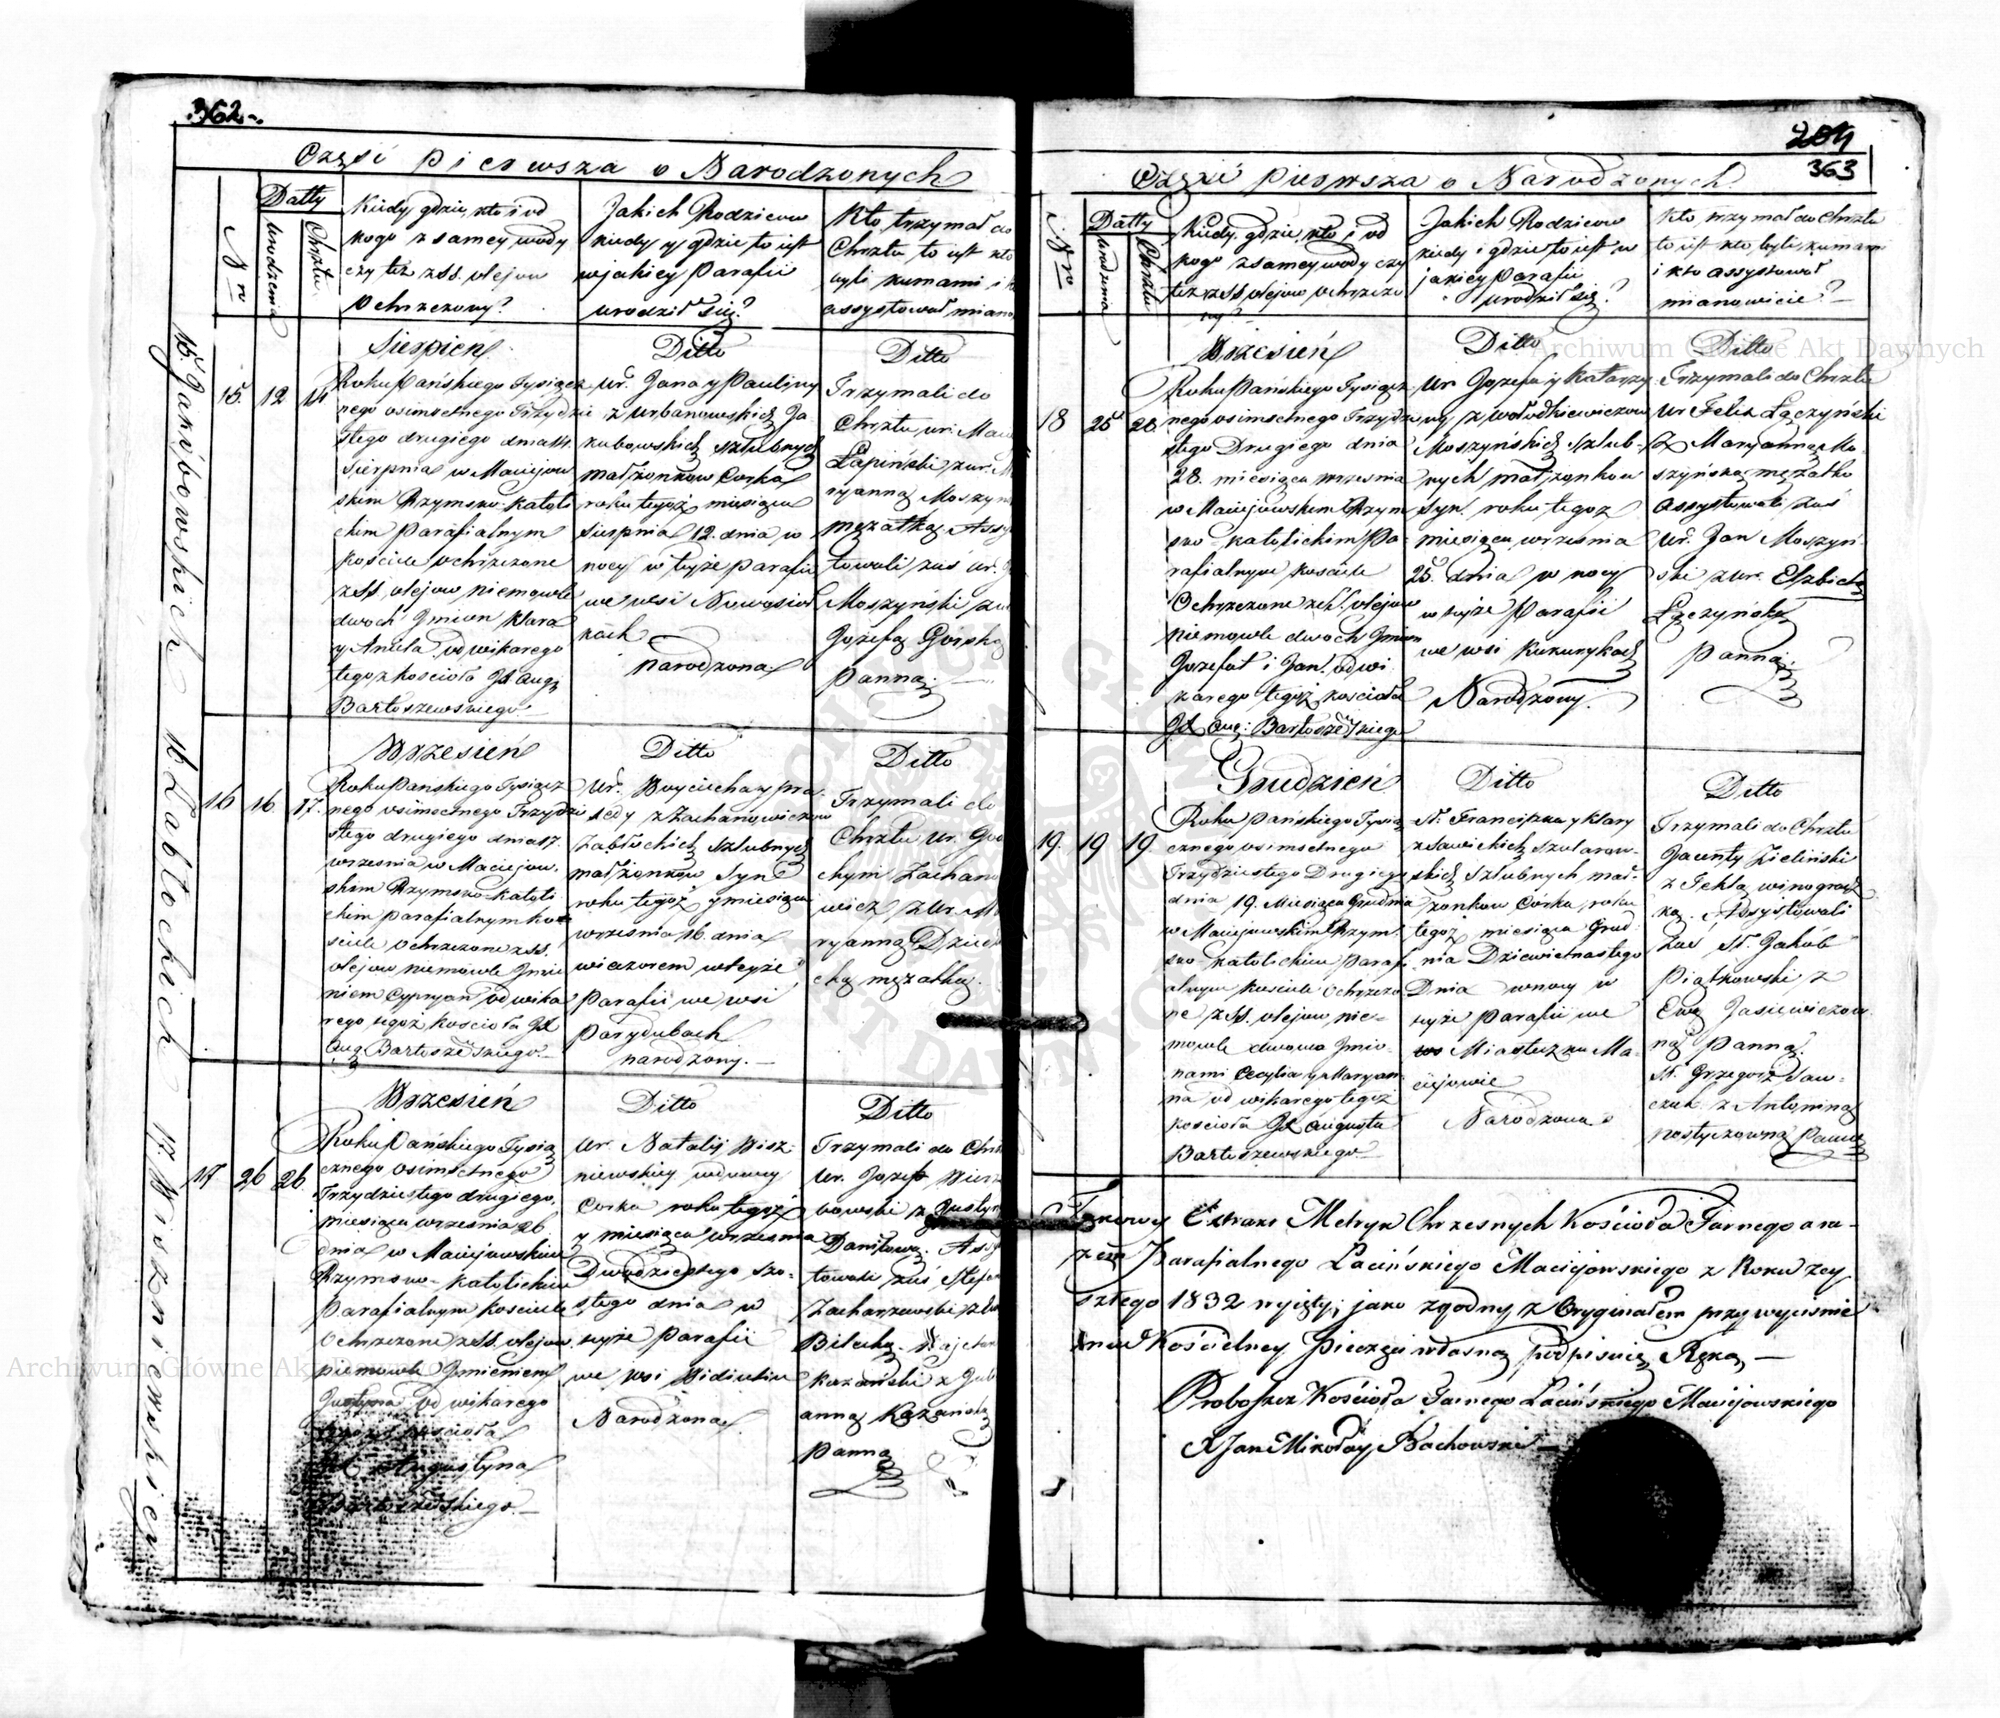 362
Część pierwsza o Narodzonych
Nro
Datty
urodzenia
Chrztu
Kiedy gdzie, kto i od
kogo z samey wody
czy też z SS. olejow
Ochrzczony?
Jakich Rodzicow
kiedy y gdzie to iest
w jakiey Parafii
urodził się?
Kto trzymał do
Chrztu to iest kto
byli kumami i
assystował miano
15. Jakóbowskich 16 Zabłockich 17. Wiszniewskiey
Sierpień
Ditto
Ditto
15. 12 14
Roku Pańskiego Tysiącz
nego osimsetnego Trzydzie
stego drugiego dnia 14.
Sierpnia w Maciejow
skim Rzymsko-Katoli
ckim Parafialnym
kościele ochrzczone
z SS. olejow niemowle
dwoch Jmion Klara
y Aniela od wikarego
tegoż kościoła X Aug:
Bartoszewskiego.
Ur. Jana y Pauliny
z Urbanowskich Ja
kubowskich szlubnych
małżonkow Corka
roku tegoż miesiąca
Sierpnia 12. dnia w
nocy w teyże Parafii
we wsi Nowosioł
kach
narodzona.
Trzymali do
Chrztu ur. Mac
Łapiński z ur. M
ryanną Moszyn
mężatką Assy
towali zaś ur.
Moszyński z ur
Jozefą Gorską
Panną.
Wrzesień
Ditto
Ditto
16 16. 17.
Roku Pańskiego Tysiącz
nego osimsetnego Trzydzie
stego drugiego dnia 17.
wrzesnia w Maciejow
skim Rzymsko-Katoli
ckim parafialnym ko
ściele ochrzczone z SS.
olejow niemowle Jmie
niem Cypryan od wika
rego tegoż kościoła X
Aug. Bartoszewskiego.
Ur. Woyciecha y
z Zacharowiczow
Zabłockich szlubnych
małżonkow Syn
roku tegoż y miesiąca
wrzesnia 16. dnia
wieczorem w teyże
parafii we wsi
Parydubach
narodzony.
Trzymali do
Chrztu Ur.
chym Zachar
wicz z Ur. M
ryanną Dziec
cką mężatką.
Wrzesień
Ditto
Ditto
17 26 26.
Roku Pańskiego Tysią
cznego osimsetnego
Trzydziestego drugiego
miesiąca wrzesnia 26
dnia w Maciejowskim
Rzymsko-katolickim
parafialnym kościele
ochrzczone z SS. olejow
niemowle Jmieniem
Justyna od wikarego
tegoż kościoła
X Augustyna
Bartoszewskiego.
Ur. Natalij Wisz
niewskiey wdowy
Corka roku tegoż
y miesiąca wrzesnia
Dwudziestego szo
stego dnia w
teyże parafii
we wsi
Narodzona.
Trzymali do Chrz
Ur. Jozef Wierz
bowski z Justyn
Daniłową. Assy
towali zaś Stefan
Zacharzewski
Bilecką. Kajetan
Kazański z Jul
anną Kazańską
Panną
204
363
Część pierwsza o Narodzonych
Nro
Datty
urodzenia
Chrztu
Kiedy, gdzie, kto i od
kogo z samey wody czy
też z SS. olejow ochrzczo
ny?
Jakich Rodzicow
kiedy i gdzie to iest w
jakiey Parafii
urodził się?
Kto trzymał do Chrztu
to iest kto byli kumami
i kto assystował
mianowicie?
Wrzesień
Ditto
Ditto
18 25 28.
Roku Pańskiego Tysiącz
nego osimsetnego Trzydzie
stego Drugiego dnia
28. miesiąca wrzesnia
w Maciejowskim Rzym
sko katolickim Pa
rafialnym kościele
Ochrzczone z SS. olejow
niemowle dwoch Jmion
Jozefat i Jan od wi
karego tegoż kościoła
X Aug: Bartoszewskiego
Ur. Jozefa y Katarzy
ny z Wołodkiewiczow
Moszyńskich szlub
nych małżonkow
Syn roku tegoż
miesiąca wrzesnia
25. dnia w nocy
w teyże Parafii
we wsi Kukurykach
Narodzony.
Trzymali do Chrztu
Ur. Felix Łączyński
z Maryanną Mo
szyńską mężatką
Assystowali zaś
Ur. Jan Moszyń
ski z ur. Elżbietą
Łączyńską
Panną.
Grudzień
Ditto
Ditto
19. 19 19.
Roku Pańskiego Tysią
cznego osimsetnego
Trzydziestego Drugiego
dnia 19. Miesiąca Grudnia
w Maciejowskim Rzym
sko-katolickim parafi
alnym kościele Ochrzczo
ne z SS. olejow nie
mowle dwoma Jmio
nami Cecylia y Maryan
na od wikarego tegoż
kościoła X Augusta
Bartoszewskiego
Sł. Franciszka y Klary
z Sawickich
skich Szlubnych mał
żonkow Córka, roku
tegoż miesiąca Grud
nia Dziewietnastego
Dnia w nocy w
teyże Parafii we
Miasteczku Ma
ciejowie
Narodzona
Trzymali do Chrztu
Jacenty Zieliński
z Teklą winogradz
ką. Assystowali
Zaś Sł. Jakób
Piątkowski z
Ewą Jasiewiczow
ną Panną.
Sł. Grzegorz Saw
czuk z Antoniną
Panną
Takowy Extrakt Metryk Chrzesnych Kościoła Farnego a ra
zem Parafialnego Łacińskiego Maciejowskiego z Roku zey
szłego 1832 wyięty, jako zgodny z Oryginałem przy wyciśnie
niu Kościelney Pieczęci własną podpisuię Ręką —
Proboszcz Kościoła Farnego Łacińskiego Maciejowskiego
X Jan Mikołay Bachowski
Archiwum Główne Akt Dawnych
Archiwum Główne Akt Dawnych